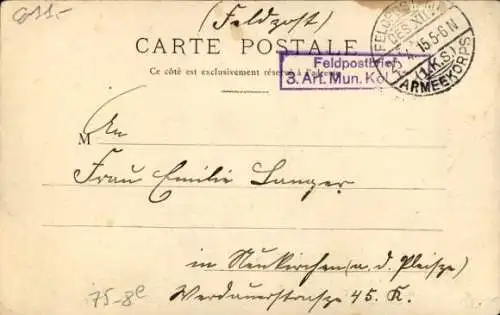 (Feldpost)
CARTE POSTALE
Ce côté est exclusivement réservé à l'adresse
FELDPOST
DES XII.
15.5-6N
(1.K.S)
ARMEEKORPS
Feldpostbrief
3. Art. Mun. Kol.
An
M
Frau Emilie Langer
in Neukirchen (a. d. Pleiße)
Werdauerstraße 45. K.
75-8e